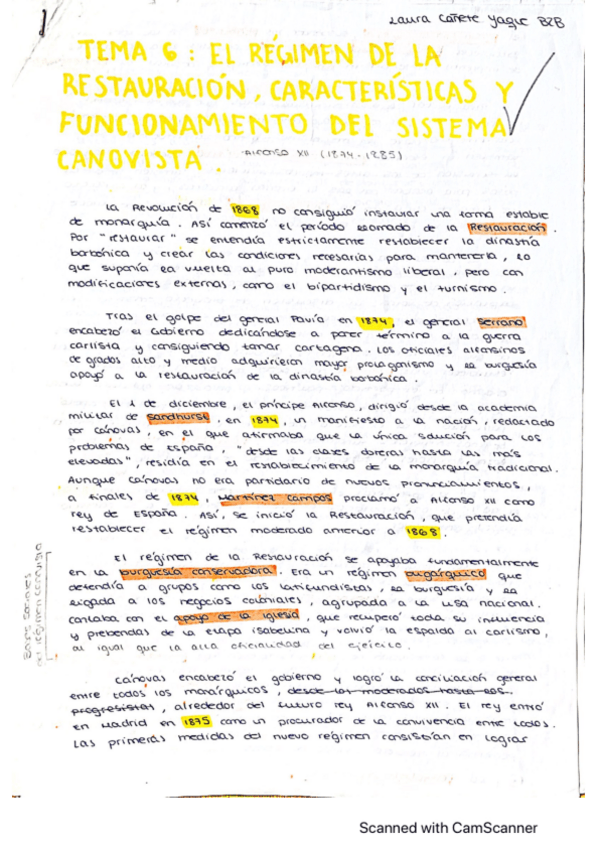 Laura Cañete Yagüe B2B
TEMA 6: EL RÉGIMEN DE LA
RESTAURACIÓN, CARACTERÍSTICAS Y
FUNCIONAMIENTO DEL SISTEMA
CANOVISTA.
ALFONSO XII (1874-1885)
La Revolución de 1868 no consiguió instaurar una forma estable
de monarquía. Así comenzó el período llamado de la Restauración.
Por "restaurar" se entendía estrictamente restablecer la dinastía
borbónica y crear las condiciones necesarias para mantenerla, lo
que suponía la vuelta al puro moderantismo liberal, pero con
modificaciones externas, como el bipartidismo y el turnismo.
Tras el golpe del general Pavía en 1874, el general Serrano
encabezó el Gobierno dedicándose a poner término a la guerra
carlista y consiguiendo tomar Cartagena. Los oficiales alfonsinos
de grados alto y medio adquirieron mayor protagonismo y la burguesía
apoyó a la restauración de la dinastía borbónica.
El 1 de diciembre, el príncipe Alfonso, dirigió desde la academia
militar de Sandhurst, en 1874, un manifiesto a la nación, redactado
por Cánovas, en el que afirmaba que la única solución para los
problemas de España, "desde las clases obreras hasta las más
elevadas", residía en el restablecimiento de la monarquía tradicional.
Aunque Cánovas no era partidario de nuevos pronunciamientos,
a finales de 1874, Martínez Campos proclamó a Alfonso XII como
rey de España. Así, se inició la Restauración, que pretendía
restablecer el régimen moderado anterior a 1868.
Bases sociales
del régimen canovista
El régimen de la Restauración se apoyaba fundamentalmente
en la burguesía conservadora. Era un régimen oligárquico que
defendía a grupos como los latifundistas, la burguesía y la
ligada a los negocios coloniales, agrupada a la Liga nacional.
Contaba con el apoyo de la Iglesia, que recuperó toda su influencia
y prebendas de la etapa isabelina y volvió la espalda al carlismo,
al igual que la alta oficialidad del ejército.
Cánovas encabezó el gobierno y logró la conciliación general
entre todos los monárquicos, desde los moderados hasta los
progresistas, alrededor del futuro rey Alfonso XII. El rey entró
en Madrid en 1875 como un procurador de la convivencia entre todos.
Las primeras medidas del nuevo régimen consistían en lograr
Scanned with CamScanner